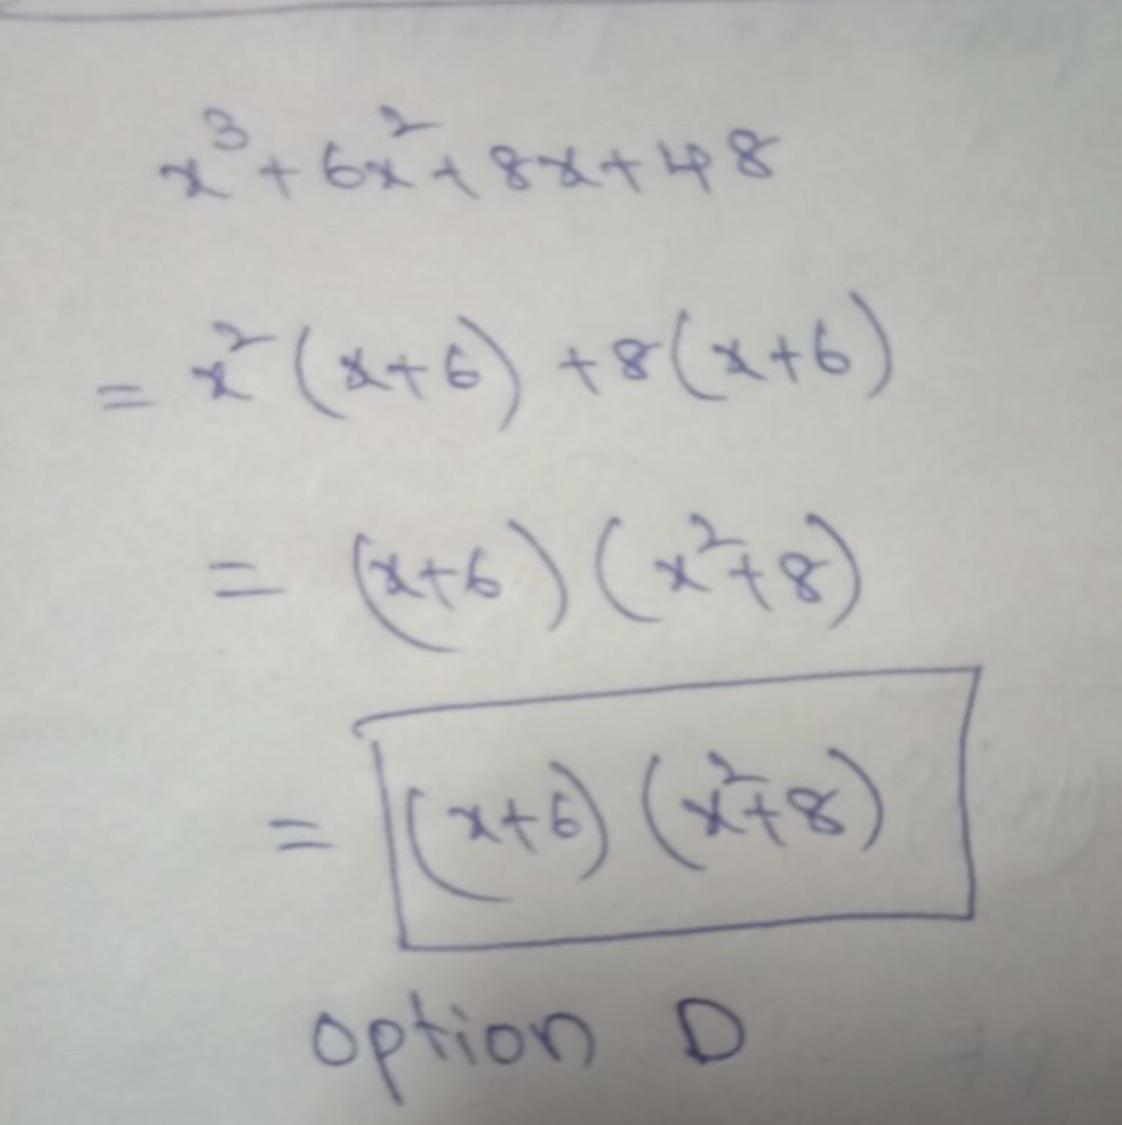 x³+6x²+8x+48
= x²(x+6) +8(x+6)
= (x+6)(x²+8)
= (x+6)(x²+8)
option D